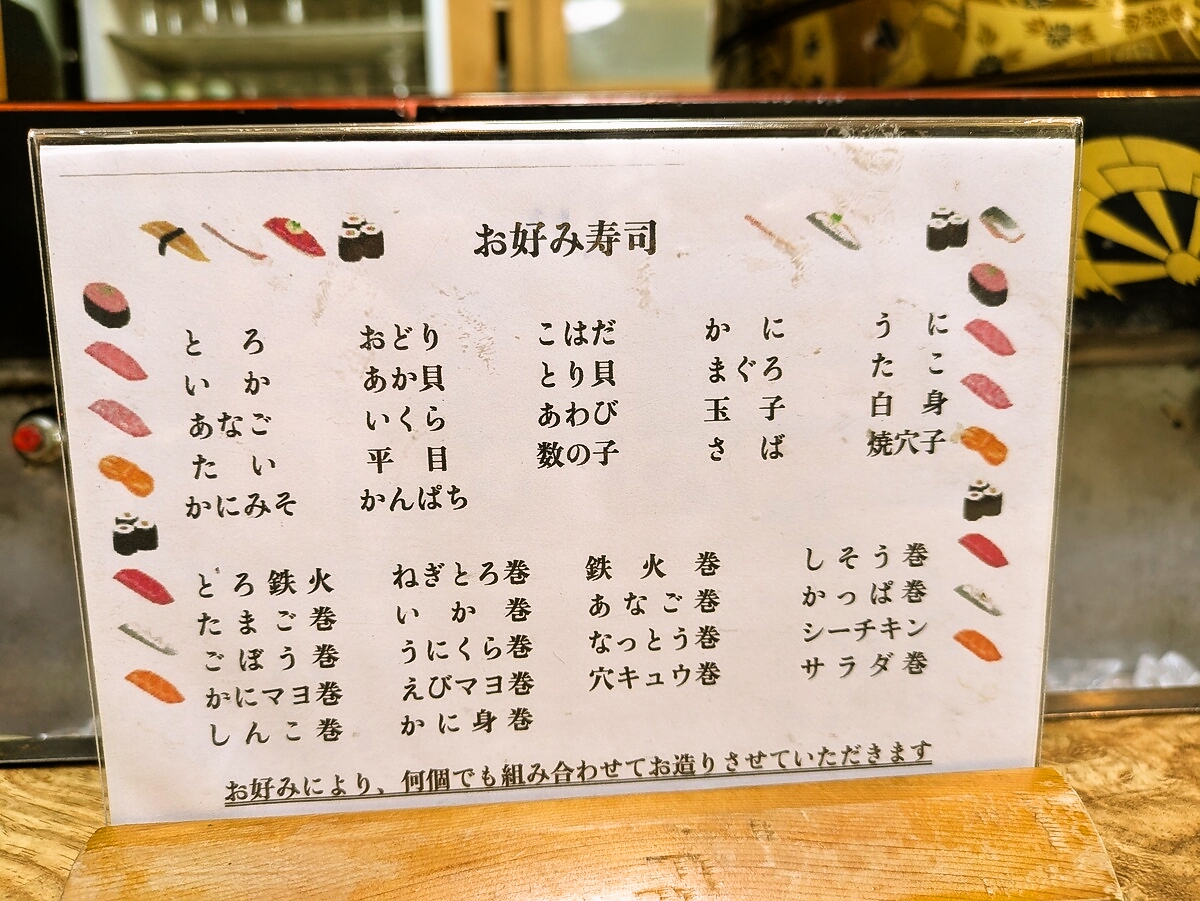 お好み寿司
とろ おどり こはだ かに うに
いか あか貝 とり貝 まぐろ たこ
あなご いくら あわび 玉子 白身
たい 平目 数の子 さば 焼穴子
かにみそ かんぱち
とろ鉄火 ねぎとろ巻 鉄火巻 しそう巻
たまご巻 いか巻 あなご巻 かっぱ巻
ごぼう巻 うにくら巻 なっとう巻 シーチキン
かにマヨ巻 えびマヨ巻 穴キュウ巻 サラダ巻
しんこ巻 かに身巻
お好みにより、何個でも組み合わせてお造りさせていただきます